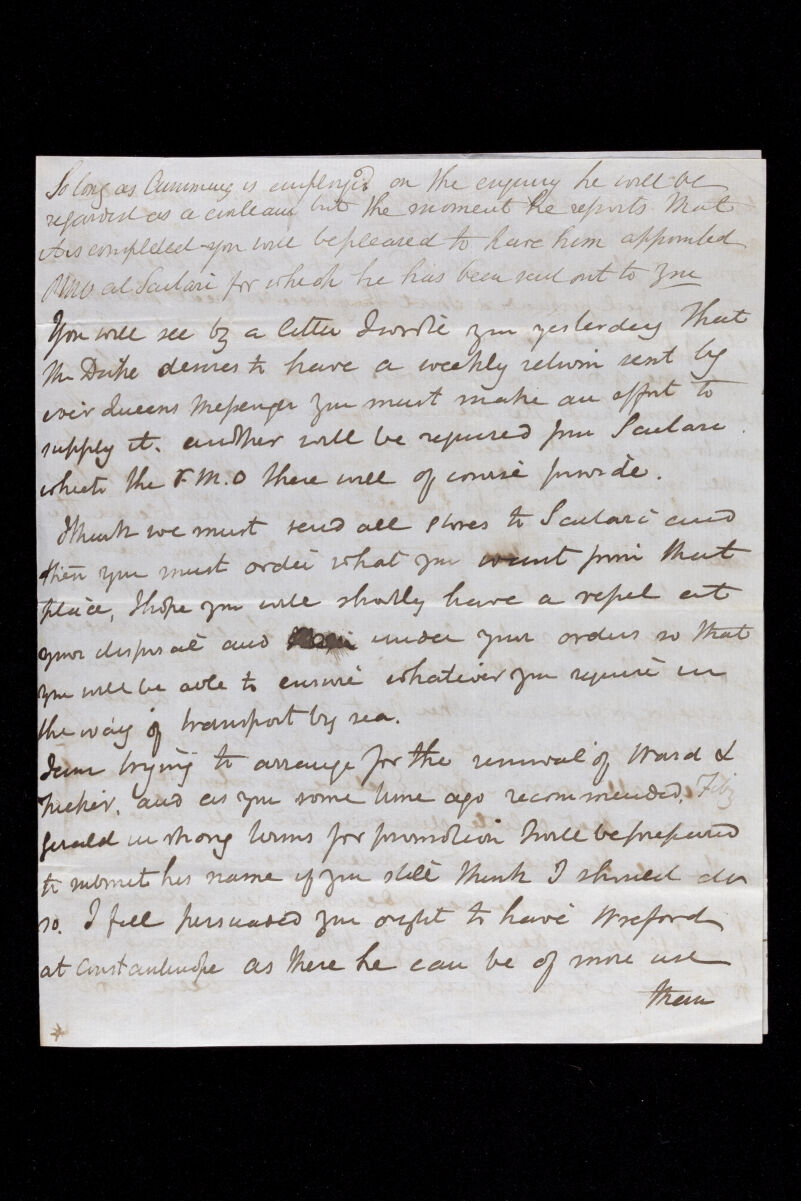 So long as Cumming is employed on the enquiry he will be
regarded as a civilian but the moment he reports that
it is completed you will be pleased to have him appointed
PMO at Scutari for which he has been sent out to you
You will see by a letter I wrote you yesterday that
the Duke desires to have a weekly return sent by
every Queens Messenger you must make an effort to
supply it. another will be required from Scutari
which the P.M.O there will of course provide.
I think we must send all stores to Scutari and
then you must order what you want from that
place, I hope you will shortly have a vessel at
your disposal and under your orders so that
you will be able to ensure whatever you require in
the way of transport by sea.
I am trying to arrange for the removal of Ward &
Tucker. and as you some time ago recommended. Fitz
Gerald in strong terms for promotion I will be prepared
to submit his name if you still think I should do
so. I feel persuaded you ought to have Wreford
at Constantinople as there he can be of more use
than